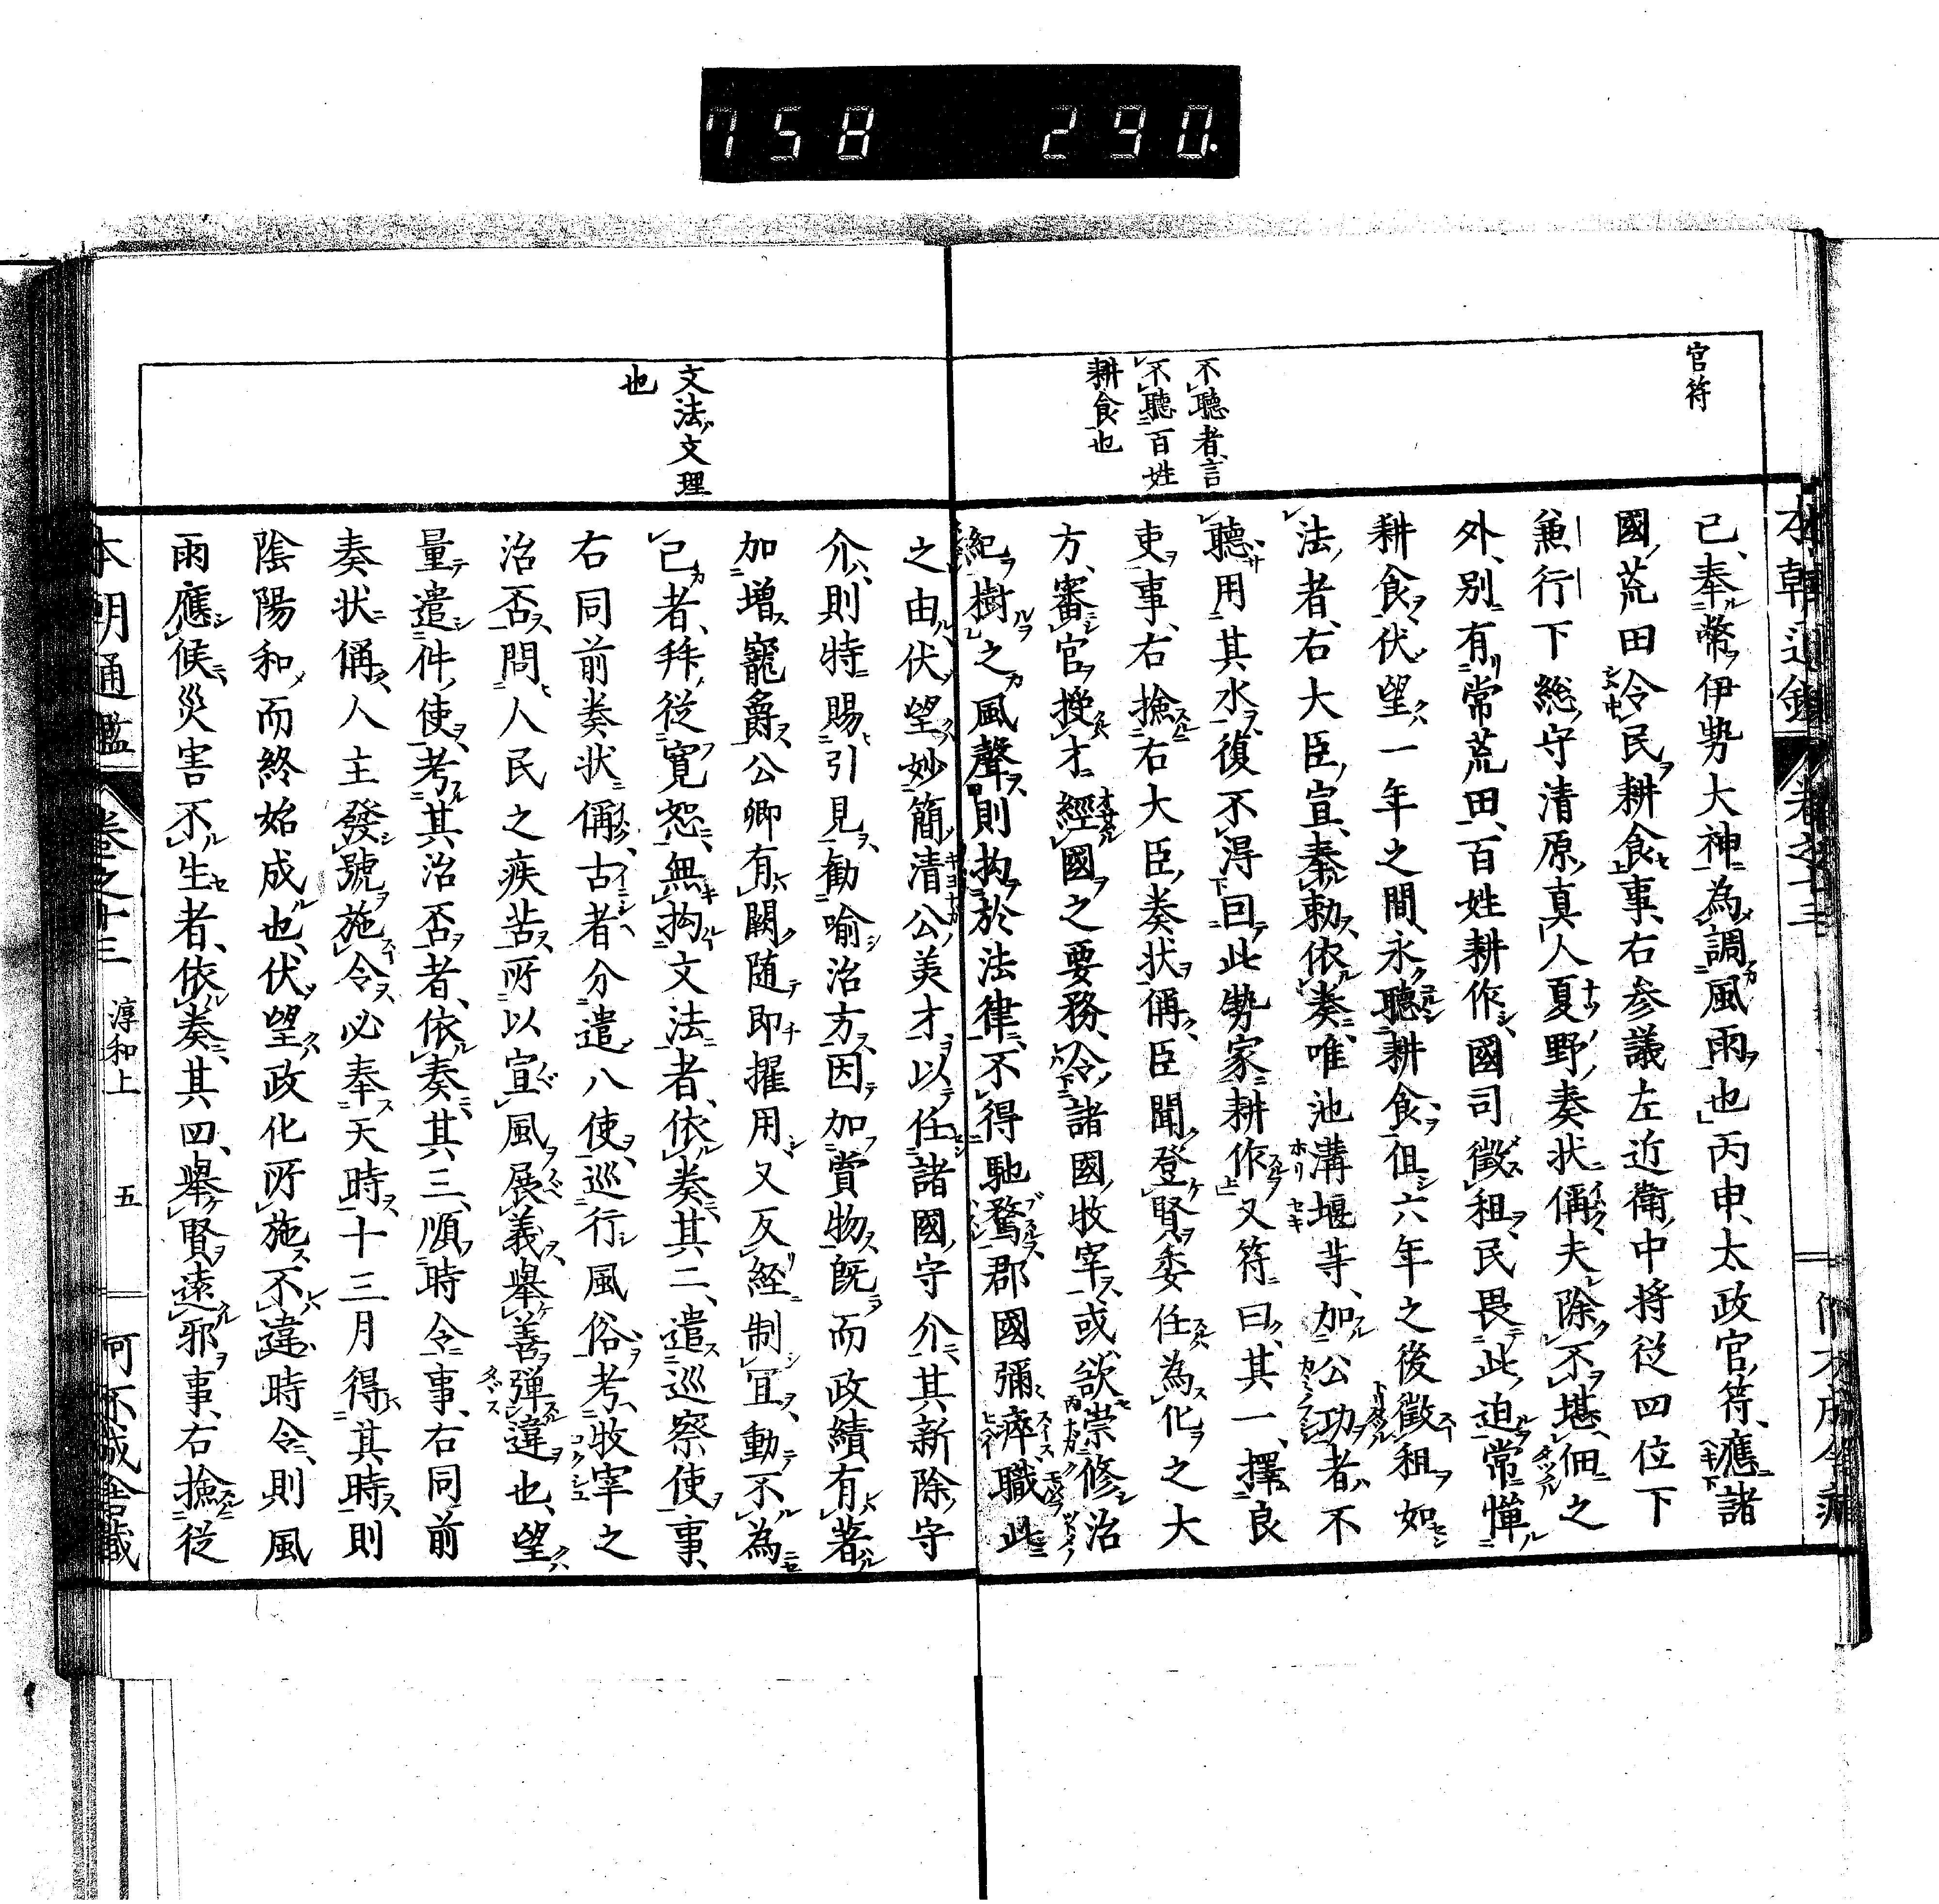 758 290.
官符
不聽者言
不聽百姓
耕食也
已奉幣伊勢大神為調風雨也丙申太政官符應諸
國荒田令民耕食事右参議左近衛中将從四位下
兼行下総守清原真人夏野奏状偁夫除不堪佃之
外別有常荒田百姓耕作國司徵租民畏此迫常憚
耕食伏望一年之間永聽耕食但六年之後徵租如
法者右大臣宣奉勅依奏唯池溝堰等加公功者不
聽用其水復不得回此勢家耕作又符曰其一擇良
吏事右撿右大臣奏状偁臣聞登賢委任為化之大
方審官授才經國之要務令諸國牧宰或欲崇修治
紀樹之風聲則拘於法律不得馳騖郡國彌瘁職此
文法文理
也
之由伏望妙簡清公美才以任諸國守介其新除守
介則特賜引見勸喻治方因加賞物既而政績有著
加增寵爵公卿有闕随即擢用又反經制宜動不為
己者拜從寬恕無拘文法者依奏其二遣巡察使事
右同前奏状偁古者分遣八使巡行風俗考牧宰之
治否問人民之疾苦所以宣風展義舉善弾違也望
量遣件使考其治否者依奏其三順時令事右同前
奏状偁人主發號施令必奉天時十三月得其時則
陰陽和而終始成也伏望政化所施不違時令則風
雨應候災害不生者依奏其四舉賢遠邪事右撿從
本朝通鑑 卷之十三 淳和上 五